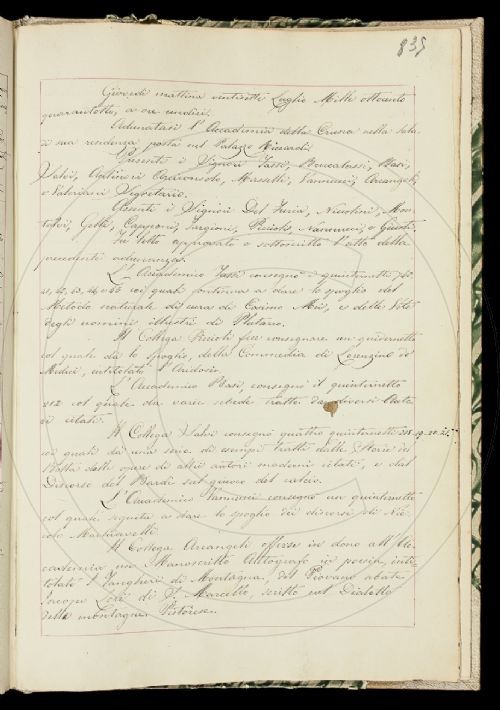 839
Giovedì mattina ventisette Luglio Mille ottocento
quarantotto, a ore undici.
Adunatasi l'Accademia della Crusca nella Sala
di sua residenza posta nel Palazzo Riccardi.
Presenti i Signori Tassi, Boucatassi, Basi,
Salvi, Ospitieri Capponsolo, Masselli, Vannucci, Arcangeli,
e Valeriani Segretario.
Assenti i Signori Del Furia, Niccolini, Mon-
talvi, Gelli, Capponi, Targioni, Piccioli, Nannucci, e Giusti.
Fu letto approvato e sottoscritto l'atto della
precedente adunanza.
L'Accademico Tassi consegnò i quinternetti
41, 42, 43, 44, e 45 coi quali continua a dare lo spoglio del
Metodo naturale di cura di Cosimo Mei, e delle Vite
degli uomini illustri di Plutarco.
Il Collega Piccioli fece consegnare un quinternetto
col quale dà lo spoglio, della Commedia di Lorenzino de
Medici, intitolata l'Aridosio.
L'Accademico Basi, consegnò il quinternetto
212 col quale dà varie schede tratte da diversi Auto
ri citati.
Il Collega Salvi consegnò quattro quinternetti 18. 19. 20. 21.
coi quali dà una serie di esempi tratti dalle Storie del
Botta dalle opere di altri autori moderni citati, e dal
Discorso del Bardi sul giuoco del calcio.
L'Accademico Vannucci consegnò un quinternetto
col quale seguita a dare lo spoglio dei discorsi di Nic
colò Machiavelli
Il Collega Arcangeli offerse in dono all'Ac
cademia un Manoscritto Autografo in poesia, inti
tolato l' Tangheri di Montagna, del Piovano abate
Iacopo Lori di S. Marcello, scritto nel Dialetto
della montagna Pistoiese.